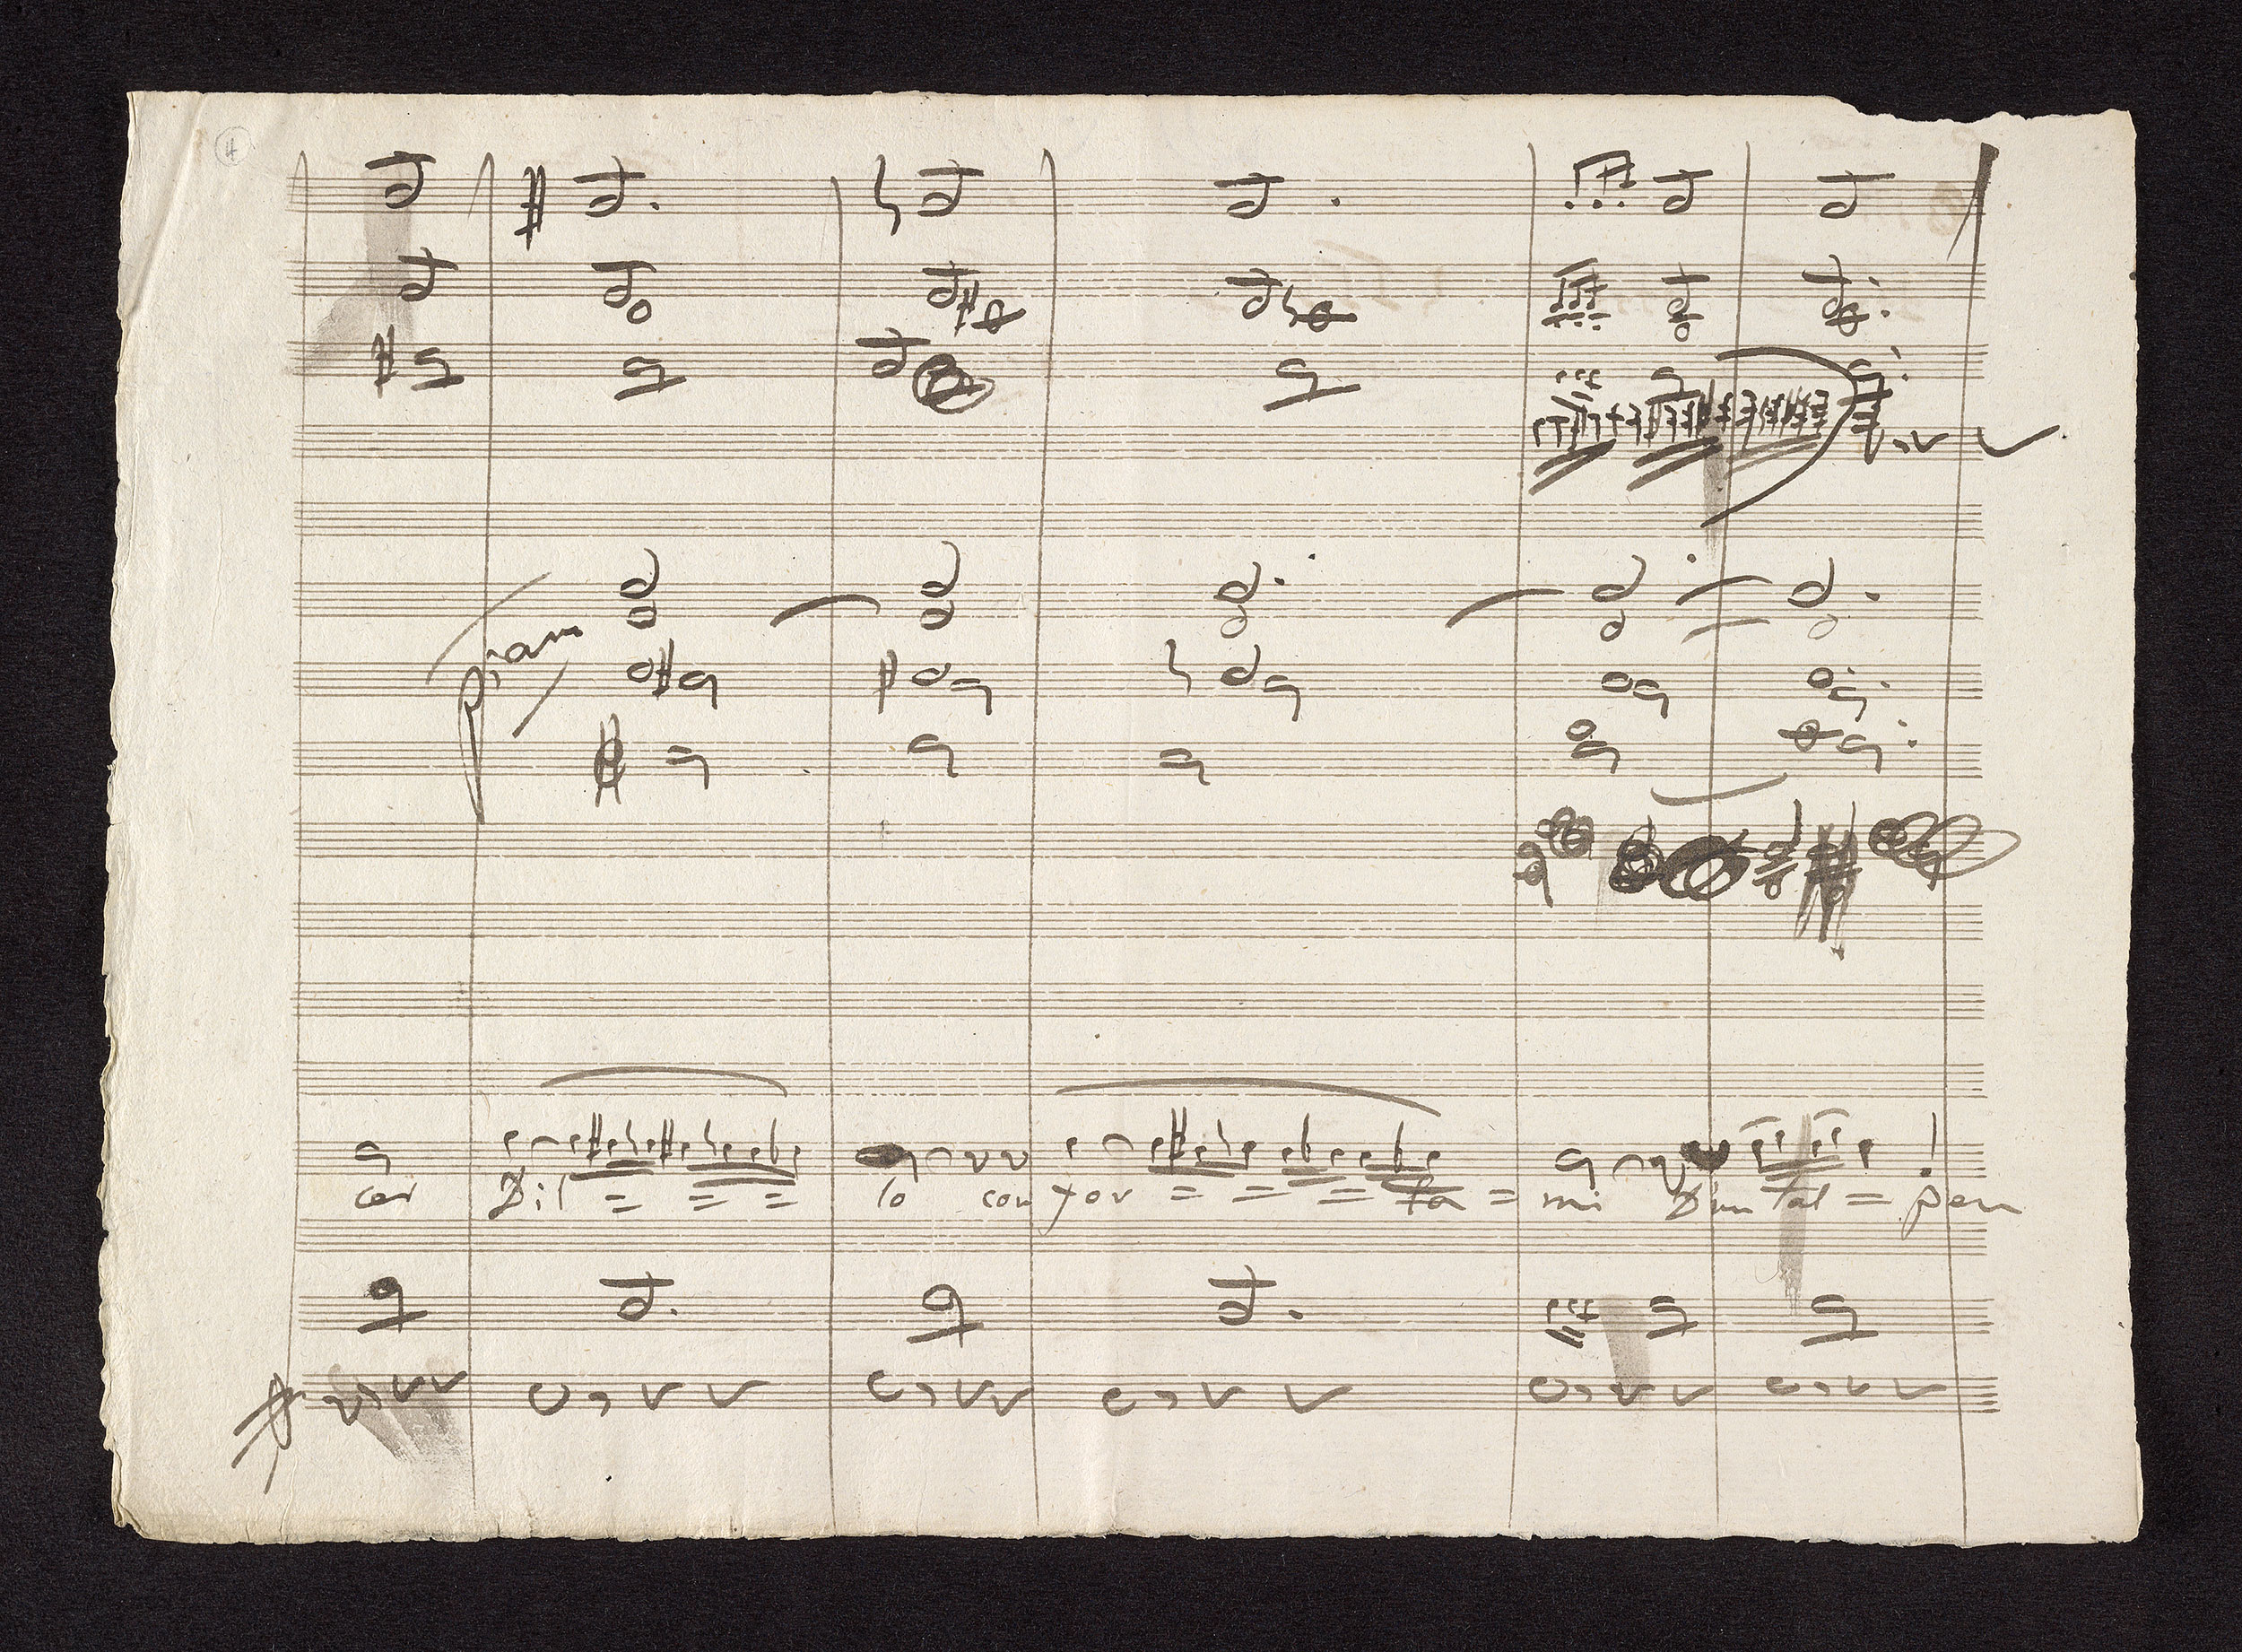 4
piano
cor Dil = = = lo confor = = = ta = mi D'un tal = pen